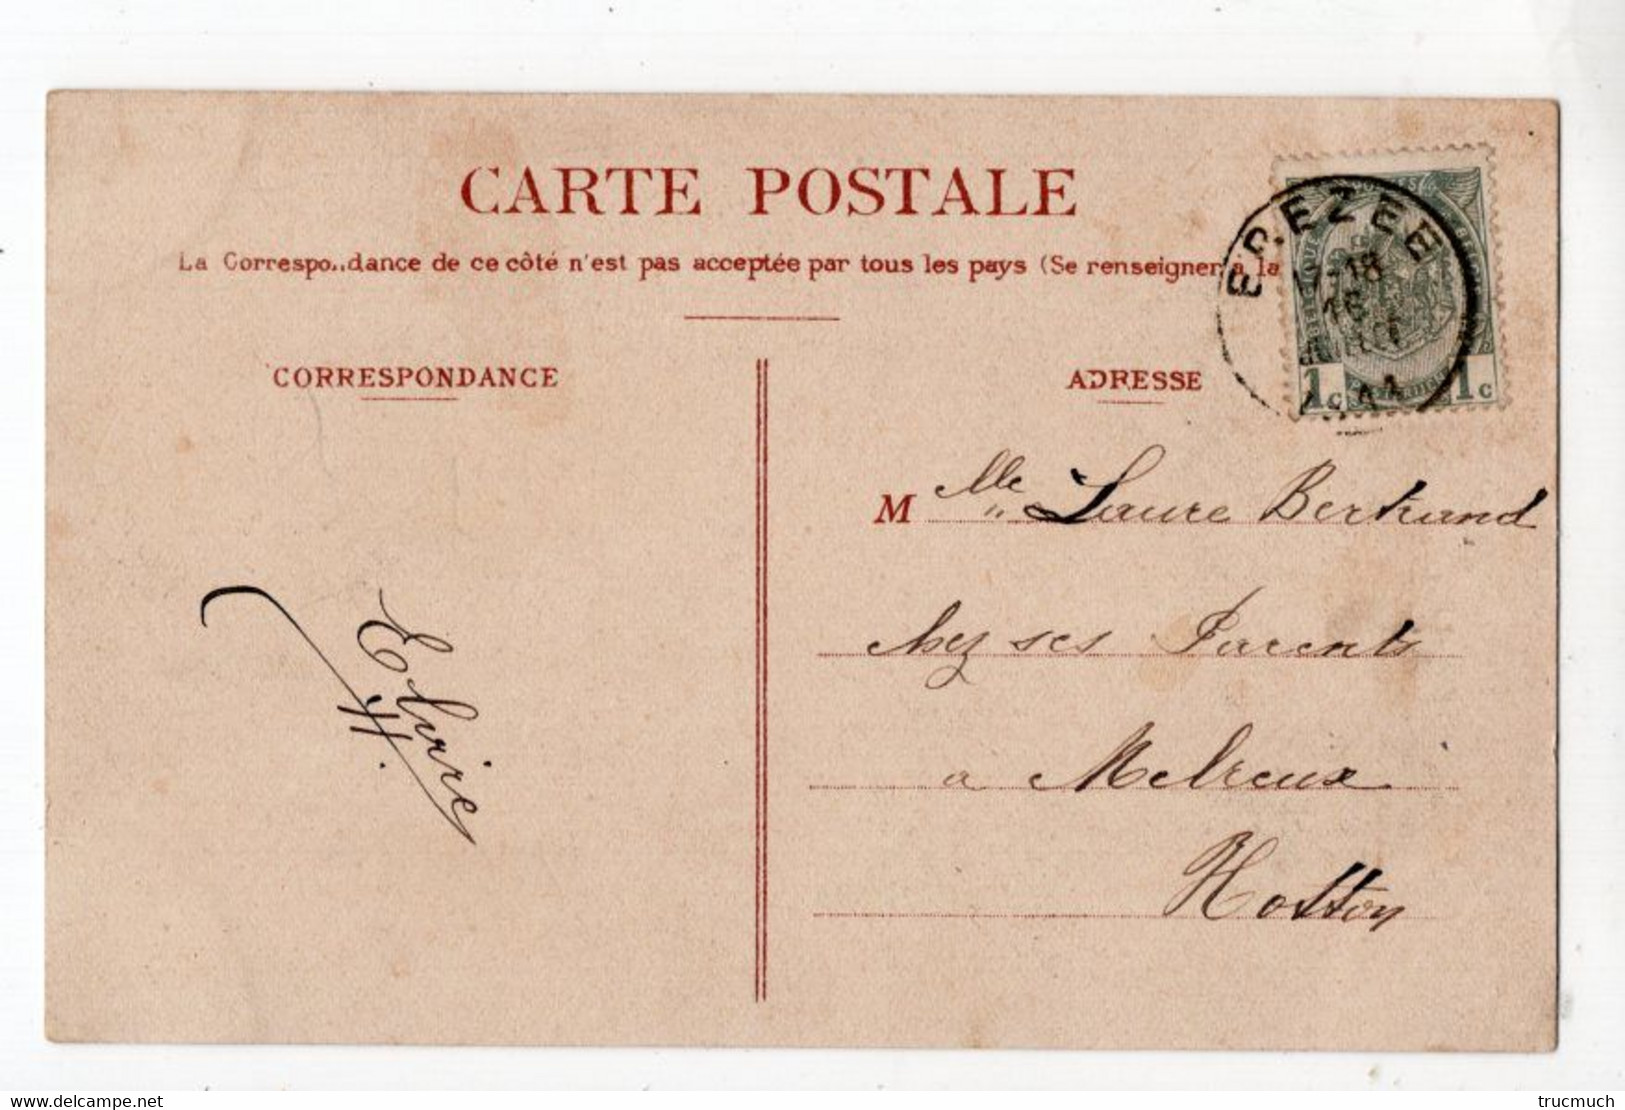 CARTE POSTALE
La Correspo..dance de ce côté n'est pas acceptée par tous les pays (Se renseigner a la
CORRESPONDANCE
ADRESSE
EREZEE
-18
16
1c 1c
M lle Laure Bertrand
chez ses Parents
a Melreux
Hotton
Elvire
delcampe.net
trucmuch